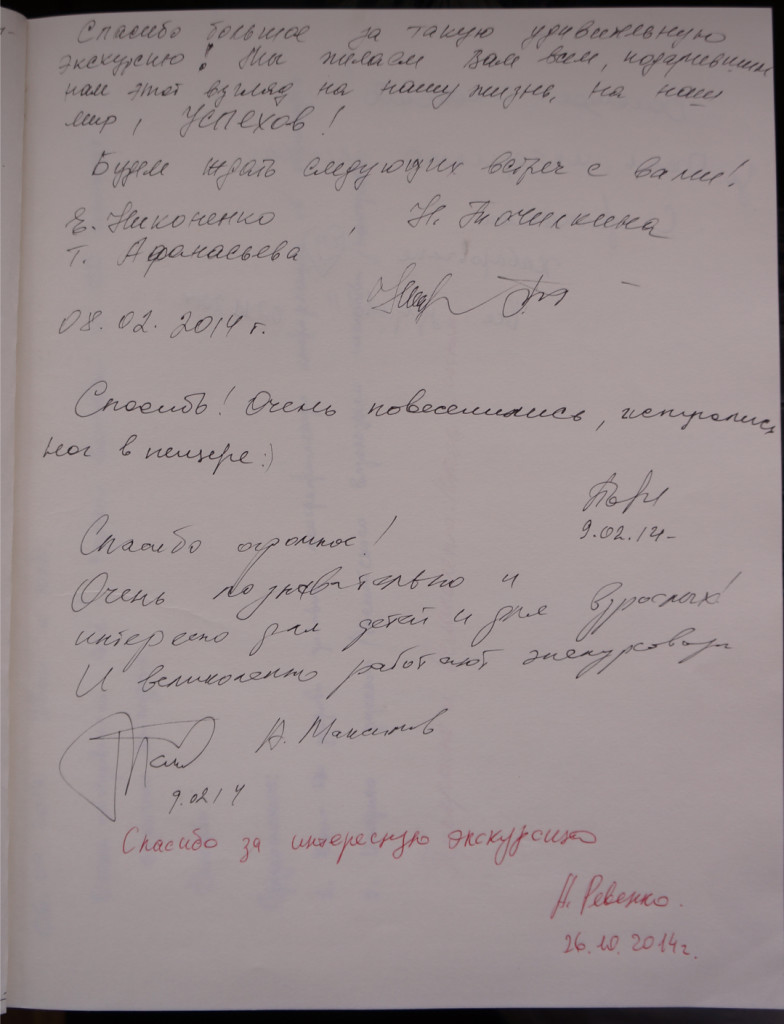 Спасибо большое за такую удивительную
экскурсию! Мы желаем вам всем, подарившим
нам этот взгляд на нашу жизнь, на наш
мир, УСПЕХОВ!
Будем ждать следующих встреч с вами!
Е. Никоненко, Н. Точилкина
Т. Афанасьева
08.02.2014 г.
Спасибо! Очень повеселились,
ног в пещере:)
9.02.14
Спасибо огромное!
Очень познавательно и
интересно для детей и для взрослых!
И великолепно работают экскурсоводы
А. Максимов
9.02.14
Спасибо за интересную экскурсию
А. Ревенко.
26.10.2014г.